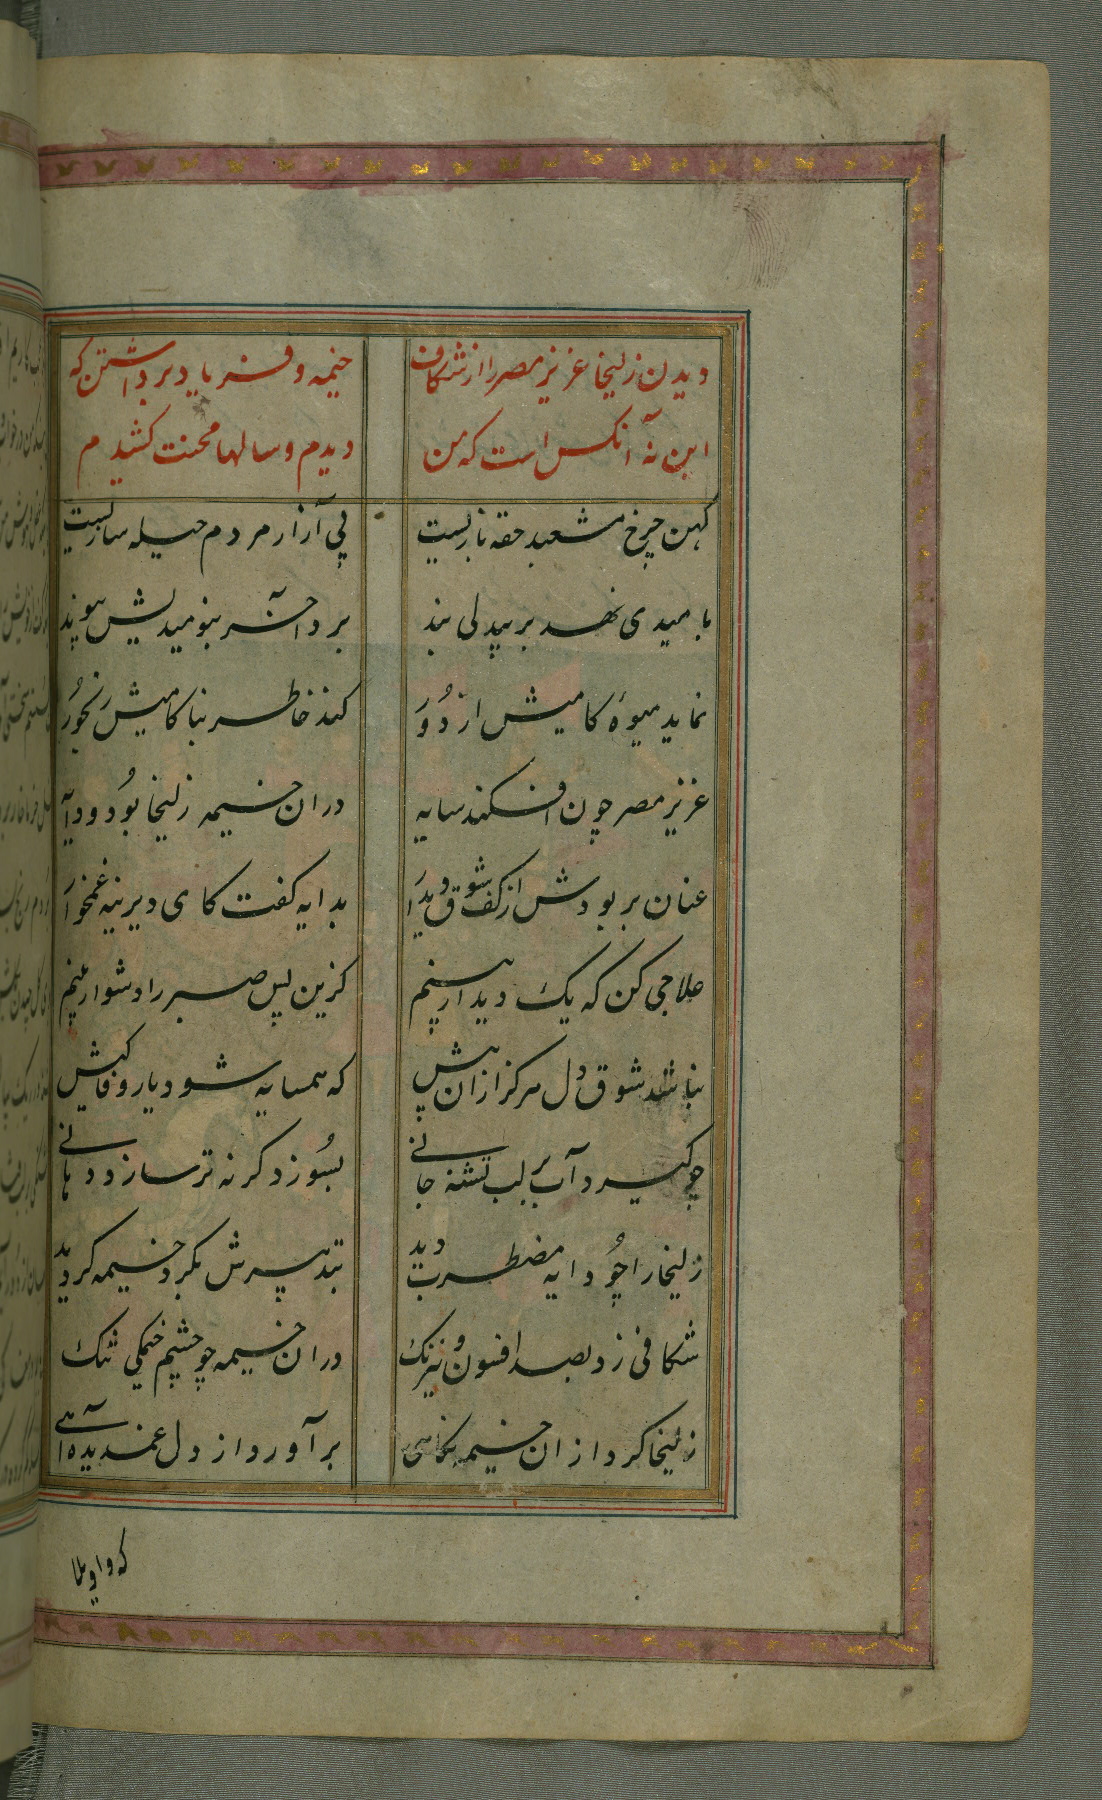 دیدن زلیخا عزیز مصر را از شکاف خیمه و فریاد برداشتن که
این نه آنکس است که من دیدم و سالها محنت کشیدم
کهن چرخ مشعبد حقه بازیست پی آزار مردم حیله سازیست
بامیدی نهد بر بیدلی بند برد آخر بنومیدیش پیوند
نماید میوهٔ کامیش از دور کند خاطر بناکامیش رنجور
عزیز مصر چون افکند سایه دران خیمه زلیخا بود و دایه
عنان بربودش از کف شوق دیدار بدایه گفت کای دیرینه غمخوار
علاجی کن که یک دیدار بینم کزین پس صبر را دشوار بینم
نباشد شوق دل هرگز ازان بیش که همسایه شود یار وفاکیش
چو گیرد آب بر لب تشنه جانی بسوزد گر نه تر سازد دهانی
زلیخا را چو دایه مضطرب دید بتدبیرش بگرد خیمه گردید
شکافی زد بصد افسون و نیرنگ دران خیمه چو چشم خیمگی تنگ
زلیخا کرد ازان خیمه نگاهی برآورد از دل غمدیده آهی
که واویلا